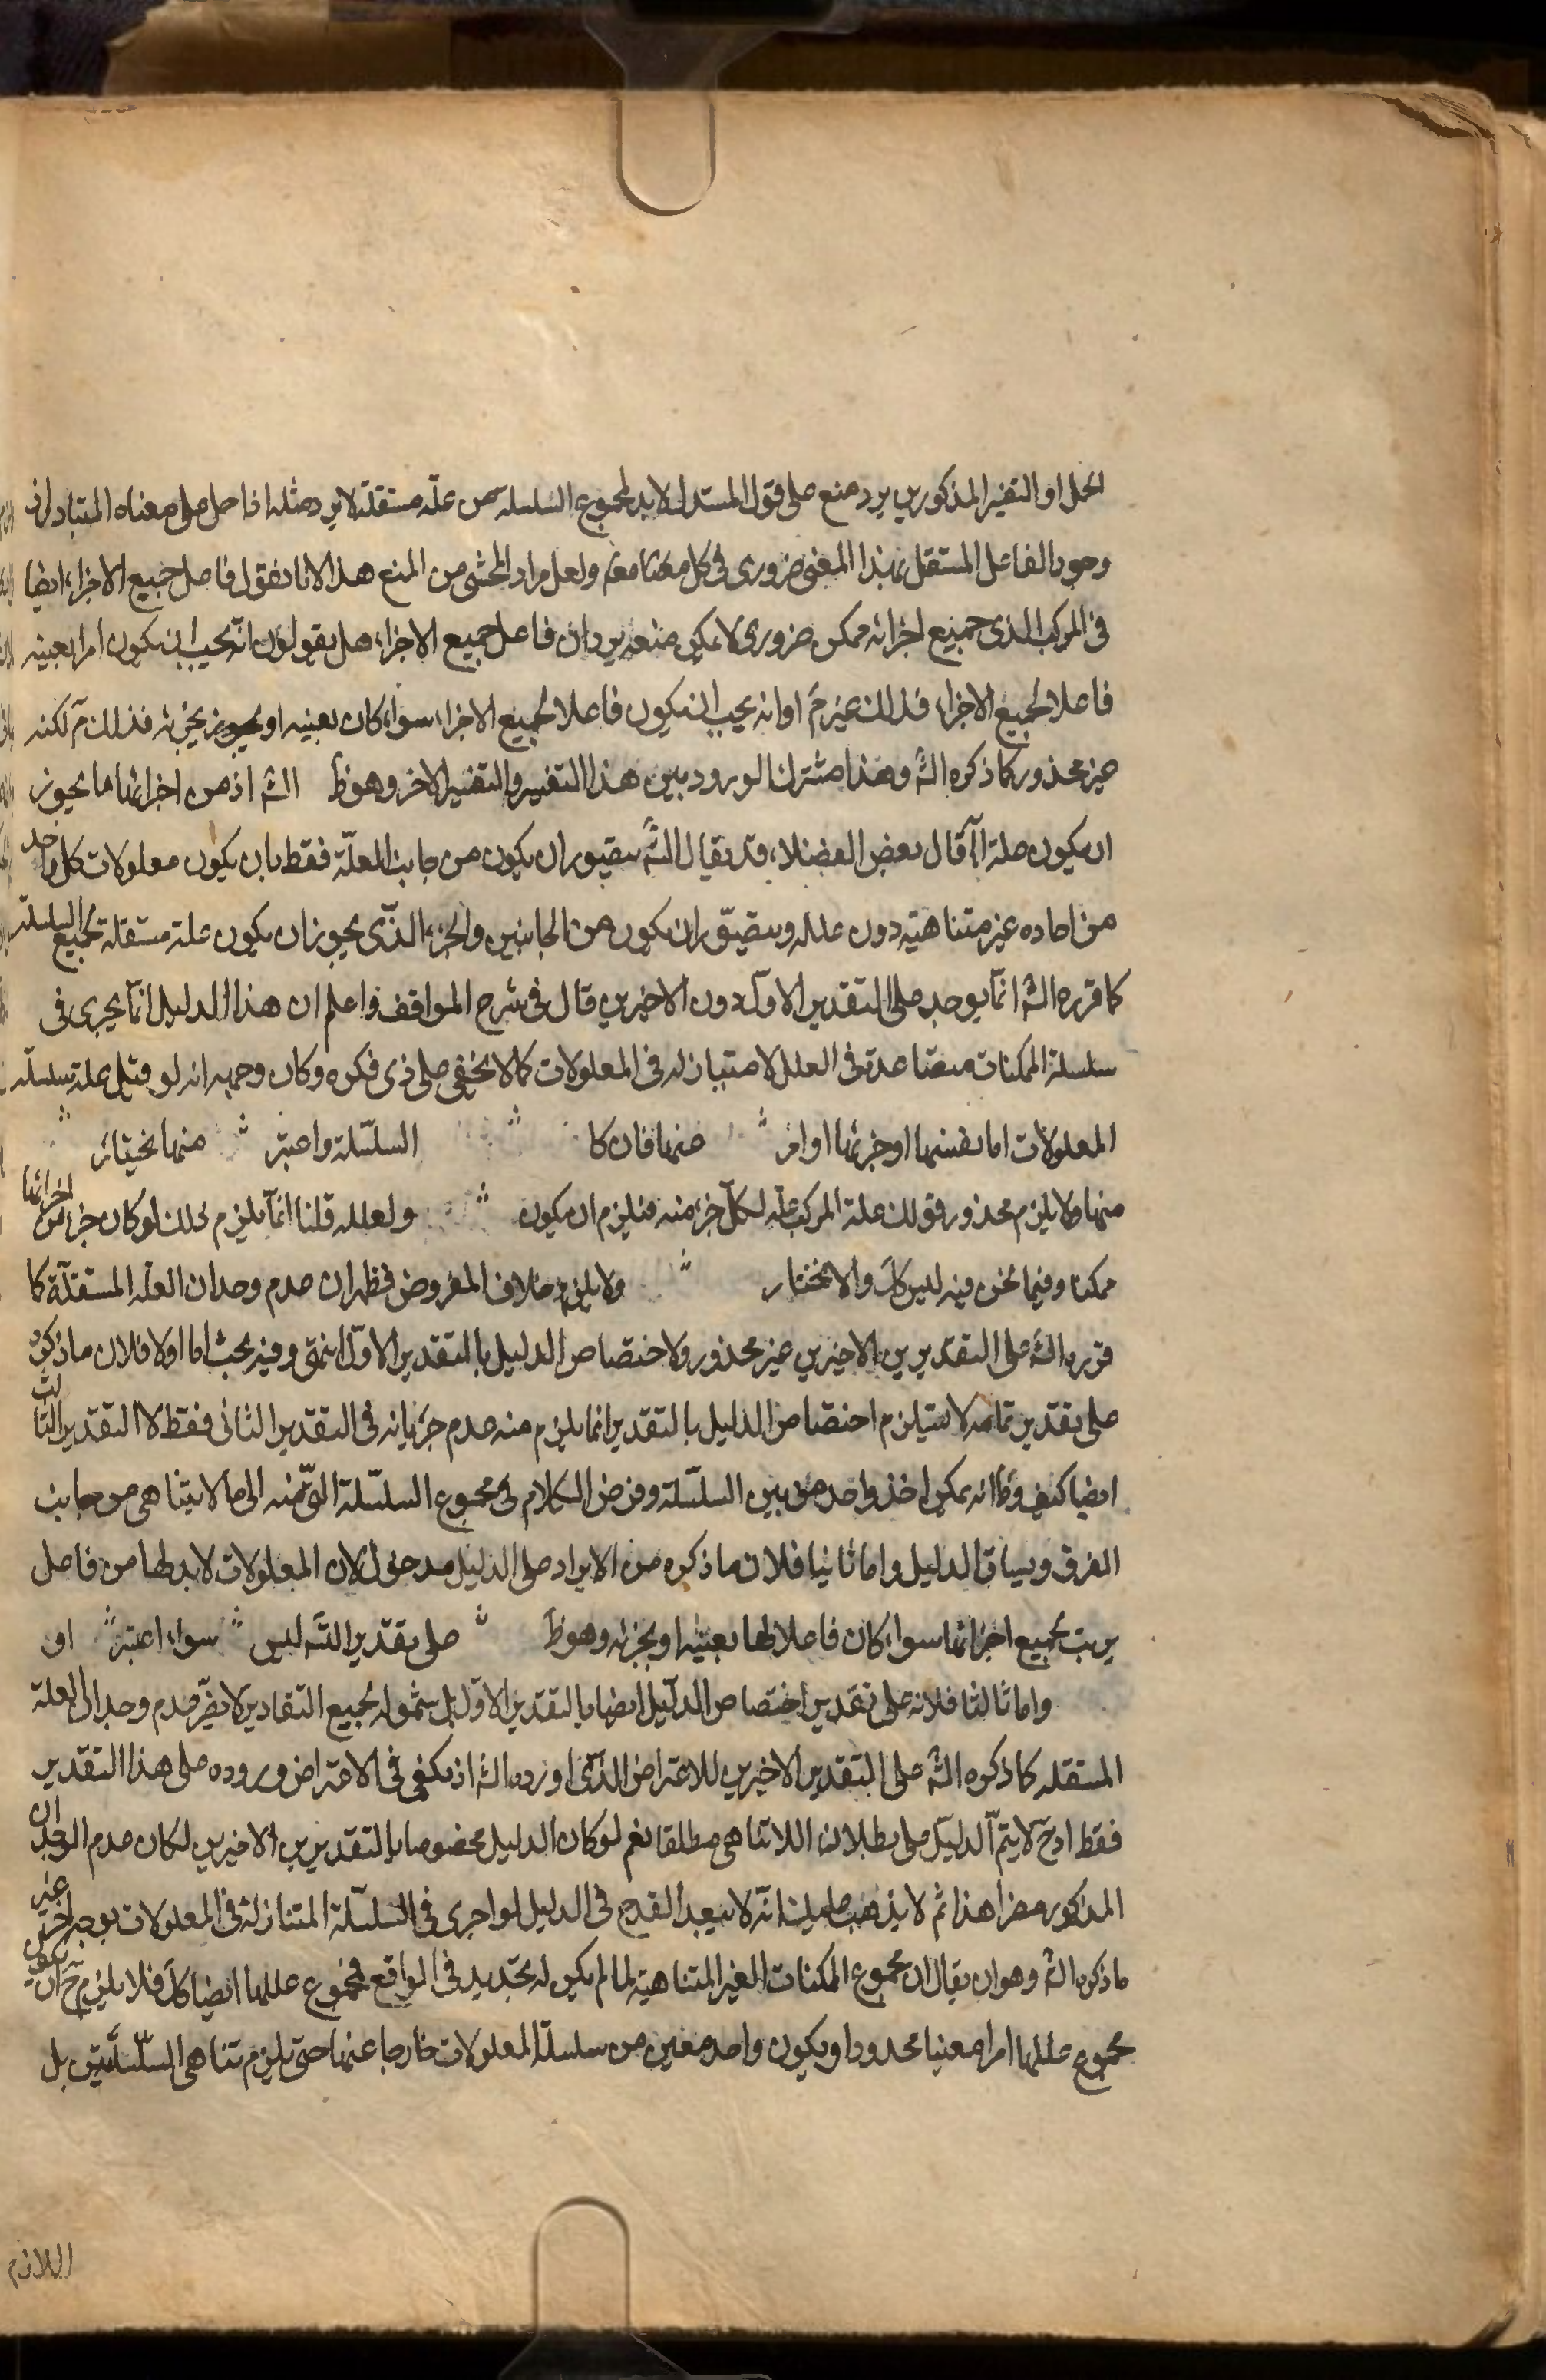 الحل او التفسير المذكورين يرد منع على قول المستدل لابد لمجموع السلسلة من علة مستقلة لا يرد مثله اذا حمل على معناه المتبادر اذ
وجود الفاعل المستقل بهذا المعنى ضرورى فى كل ولعل مراد المحشى من المنع هذا لانا نقول فاعل جميع الاجزاء ايضا
فى المركب الذى جميع اجزائه ممكن ضرورى لا يمكن منعه يرد ان فاعل جميع الاجزاء هل يقولون انه يجب ان يكون امرا بعينه
فاعلا لجميع الاجزاء فذلك غير مَ او انه يجب ان يكون فاعلا لجميع الاجزاء سواء كان بعينه او بجزئه فذلك مَ لكنه
غير محذور كما ذكره الشَ وهذا مشترك الورود بين هذا التفسير والتفسير الاخر وهو ظَ الشه اذ من اجزائها ما يجوز
ان يكون علة قال بعض الفضلاء قد يقال الشَ يتصور ان يكون من جانب العلة فقط بان يكون معلولات كل واحد
من احاده غير متناهية دون علله ويتصور ان يكون من الجانبين والجزء الذى يجوز ان يكون علة مستقلة لجميع السلسلة
كما قرره الشه انما يوجد على التقدير الاول دون الاخيرين قال فى شرح المواقف واعلم ان هذا الدليل انما يجرى فى
سلسلة الممكنات متصاعدة فى العلل لا متنازلة فى المعلولات كما لا يخفى على ذى فكره وكان وجهه انه لو قيل علة سلسلة
المعلولات اما نفسها او جزئها او امر منها فان كا السلسلة واعتبر منها نختار
منها ولا يلزم محذور قولك علة المركب علة لكل جزء منه فيلزم ان يكون ولعلله قلنا انما يلزم ذلك لو كان جزء من اجزائها
ممكنا وفيما نحن فيه ليس كك والا نختار ولا يلزم خلاف المفروض فظهر ان عدم وجدان العلة المستقلة كما
قرره الشه على التقديرين الاخيرين غير محذور ولاختصاص الدليل بالتقدير الاول انتهى وفيه بحث اما اولا فلان ما ذكره
على تقدير تمامه لا يستلزم اختصاص الدليل بالتقدير انما يلزم منه عدم جريانه فى التقدير الثانى فقط لا التقدير الثالث
ايضا كيف وظ انه يمكن اخذ واحد من بين السلسلة وفرض الكلام فى مجموع السلسلة التى منه الى ما لا يتناهى من جانب
الفرق وسياق الدليل واما ثانيا فلان ما ذكره من الايراد على الدليل مدخول لان المعلولات لابد لها من فاعل
يرتب لجميع اجزائها سواء كان فاعلا لها بعينه او بجزئه وهو ظَ على تقدير الشه ليس سواء اعتبر او
واما ثالثا فلانه على تقدير اختصاص الدليل ايضا بالتقدير الاول بل شموله لجميع التقادير لا يضر عدم وجدان العلة
المستقلة كما ذكره الشه على التقدير الاخيرين للاعتراض الذى اورده الشه اذ يكفى فى الاعتراض وروده على هذا التقدير
فقط اذ ح لا يتم الدليل على بطلان اللاتناهى مطلقا نعم لو كان الدليل مخصوصا بالتقديرين الاخيرين لكان عدم الوجدان
المذكور مضرا هذا ثم لا يذهب عليك انه لا يبعد القدح فى الدليل لو اجرى فى السلسلة المتنازلة فى المعلولات بوجه اخر غير
ما ذكره الشه وهو ان يقال ان مجموع الممكنات الغير المتناهية لما لم يكن له تحديد فى الواقع فمجموع عللها ايضا كك فلا يلزم ح ان يكون
مجموع عللها امرا معينا محدودا ويكون واحد معين من سلسلة المعلولات خارجا عنها حتى يلزم تناهى السلسلتين بل
اللازم